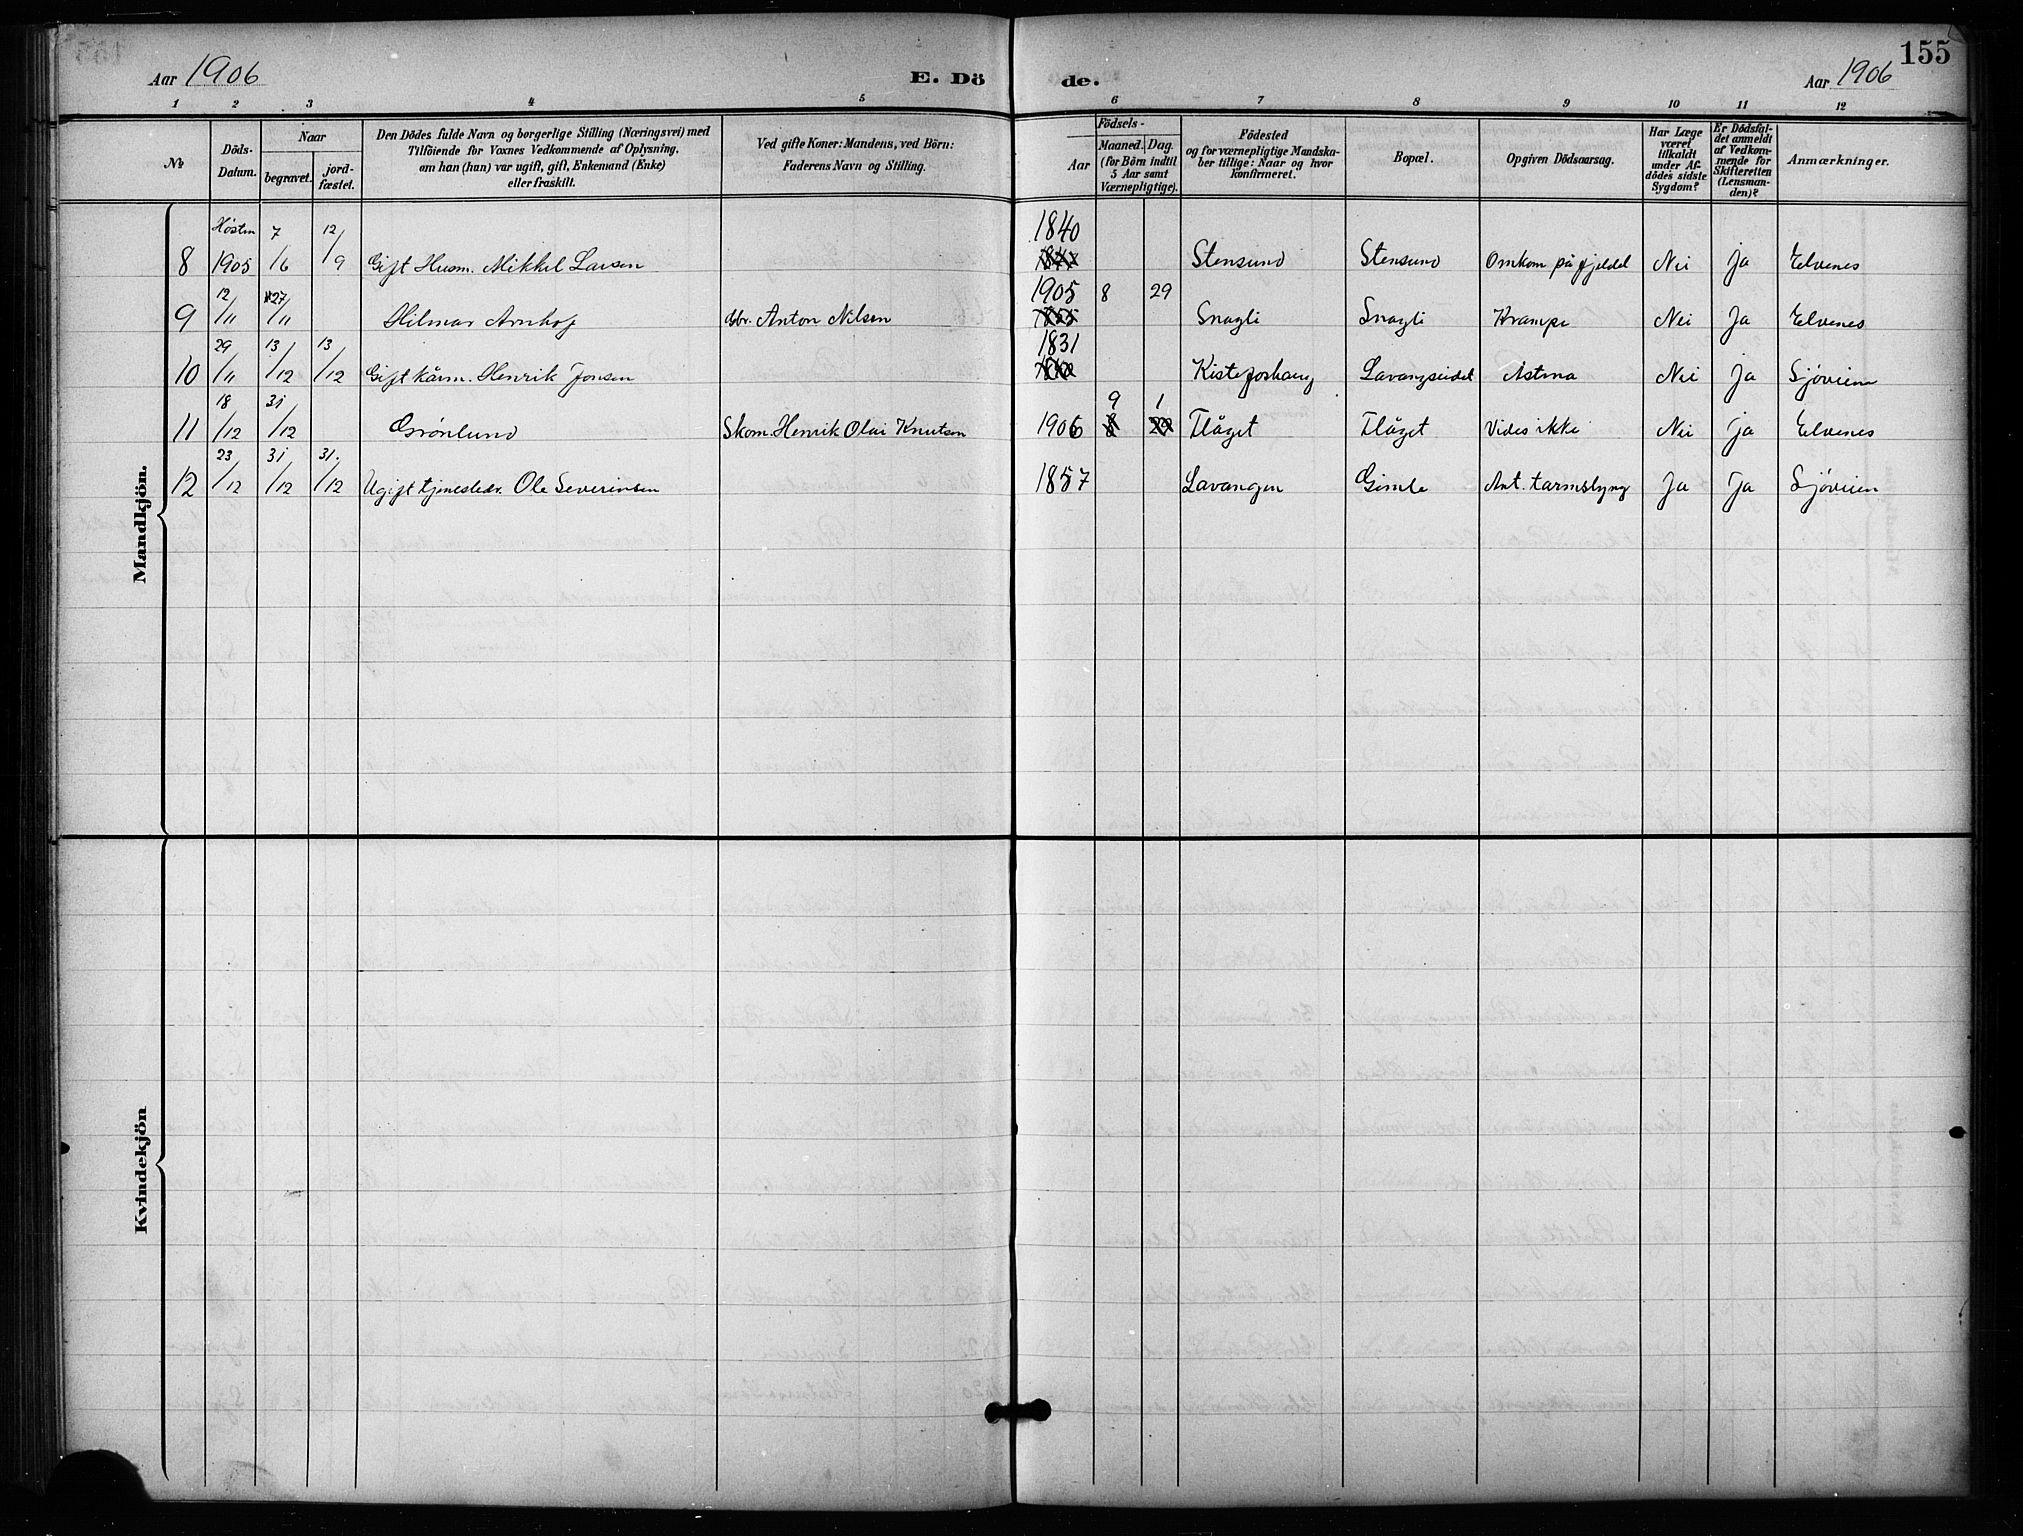 155
Aar 1906 E. Dö de. Aar 1906
1 2 3 4 5 6 7 8 9 10 11 12
No
Döds-Datum.
Naar
begravet.
jord-fæstet.
Den Dödes fulde Navn og borgerlige Stilling (Næringsvei) med
Tilföiende for Voxnes Vedkommende af Oplysning,
om han (hun) var ugift, gift, Enkemand (Enke)
eller fraskilt.
Ved gifte Koner: Mandens, ved Börn:
Faderens Navn og Stilling.
Födsels-
Aar
Maaned. Dag.
(for Börn indtil
5 Aar samt
Værnepligtige).
Födested
og for værnepligtige Mandska-
ber tillige: Naar og hvor
konfirmeret.
Bopæl.
Opgiven Dödsaarsag.
Har Læge
været
tilkaldt
under Af-
dödes sidste
Sygdom?
Er Dödsfal-
det anmeldt
af Vedkom-
mende for
Skifteretten
(Lensman-
den)?
Anmærkninger.
Mandkjön.
8 Høsten 1905 7/6 12/9 Gift Husm. Mikkel Larsen 1840 Stensund Stensund Omkom på fjeldet Nei Ja Elvenes
9 12/11 27/11 Hilmar Arnhof Gbr. Anton Nilsen 1905 8 29 Snagli Snagli Krampe Nei Ja Elvenes
10 29/11 13/12 13/12 Gift kårm. Henrik Jonsen 1831 Kistefoshaug Lavangseidet Astma Nei Ja Sjøveien
11 18/12 31/12 Grønlund Skom. Henrik Olai Knutsen 1906 9 1 Flåget Flåget Vides ikke Nei Ja Elvenes
12 23/12 31/12 31/12 Ugift tjenestedr. Ole Severinsen 1857 Lavangen Gimle Ant. tarmslyng Ja Ja Sjøveien
Kvindekjön